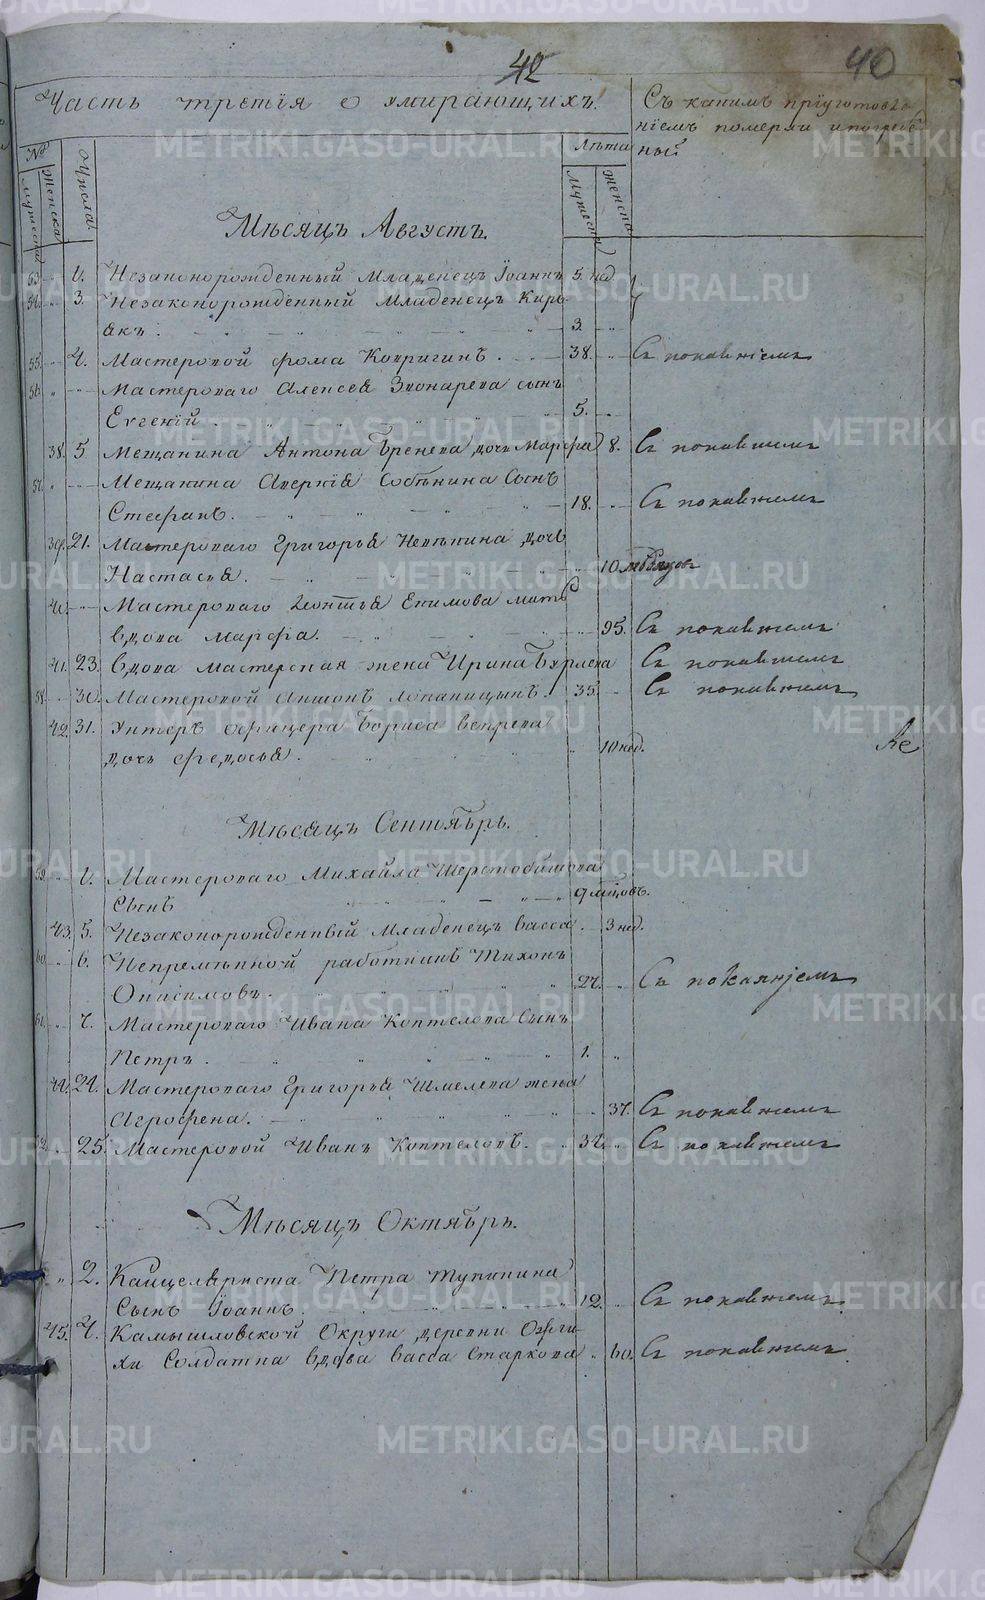 42 40
Часть третія о умирающихъ.
Съ какимъ пріуготовле-
ніемъ померли и погребе-
ный
№ Числа Лѣта
мужеска женска мужеска женска
Мѣсяцъ Августъ.
53. " Незаконорожденный Младенецъ Іоаннъ 5. нед.
54. " 3. Незаконорожденный Младенецъ Кирь-
якъ. 3. "
55. " Мастеровой Фома Ковригинъ. 38. " Съ покаяніемъ
56. " Мастероваго Алексея Звонарева сынъ
Евгеній. 5. "
38. 5 Мещанина Антона дочь Марфа 8. Съ покаяніемъ
Мещанина Аверкія Собѣнина Сынъ
Стефанъ. 18. " Съ покаяніемъ
39. 21. Мастероваго Григорья дочь
Настасья. " 10
40. " Мастероваго Леонтья Екимова мать
вдова Марфа. " 95. Съ покаяніемъ
41. 23. Вдова мастерская жена Ирина Бурлева Съ покаяніемъ
58. " 30. Мастеровой Антонъ Лопаницынъ. 35. " Съ покаяніемъ
42. 31. Унтеръ офицера Бориса Ветрева
дочь Федосья. " 10 нед.
Мѣсяцъ Сентябрь.
59. " Мастероваго Михайла Шерстобитова
Сынъ 9 мѣцовъ.
43. 5. Незаконорожденный Младенецъ Васса. 3 нед.
60. " 6. Непремѣнной работникъ Тихонъ
Онисимовъ. 27. " Съ покаяніемъ
61. " Мастероваго Ивана Коптелова Сынъ
Петръ. 1. "
44. 24. Мастероваго Григорья Шмелева жена
Агрофена. " 37. Съ покаяніемъ
62. " 25. Мастеровой Иванъ Коптеловъ. " Съ покаяніемъ
Мѣсяцъ Октябрь.
" 2. Канцеляриста Петра Тупикина
Сынъ Іоаннъ. 12. " Съ покаяніемъ.
45. Камышловской Округи деревни Ожги-
хи Солдатка вдова Васса Старкова " 60. Съ покаяніемъ.
METRIKI.GASO-URAL.RU